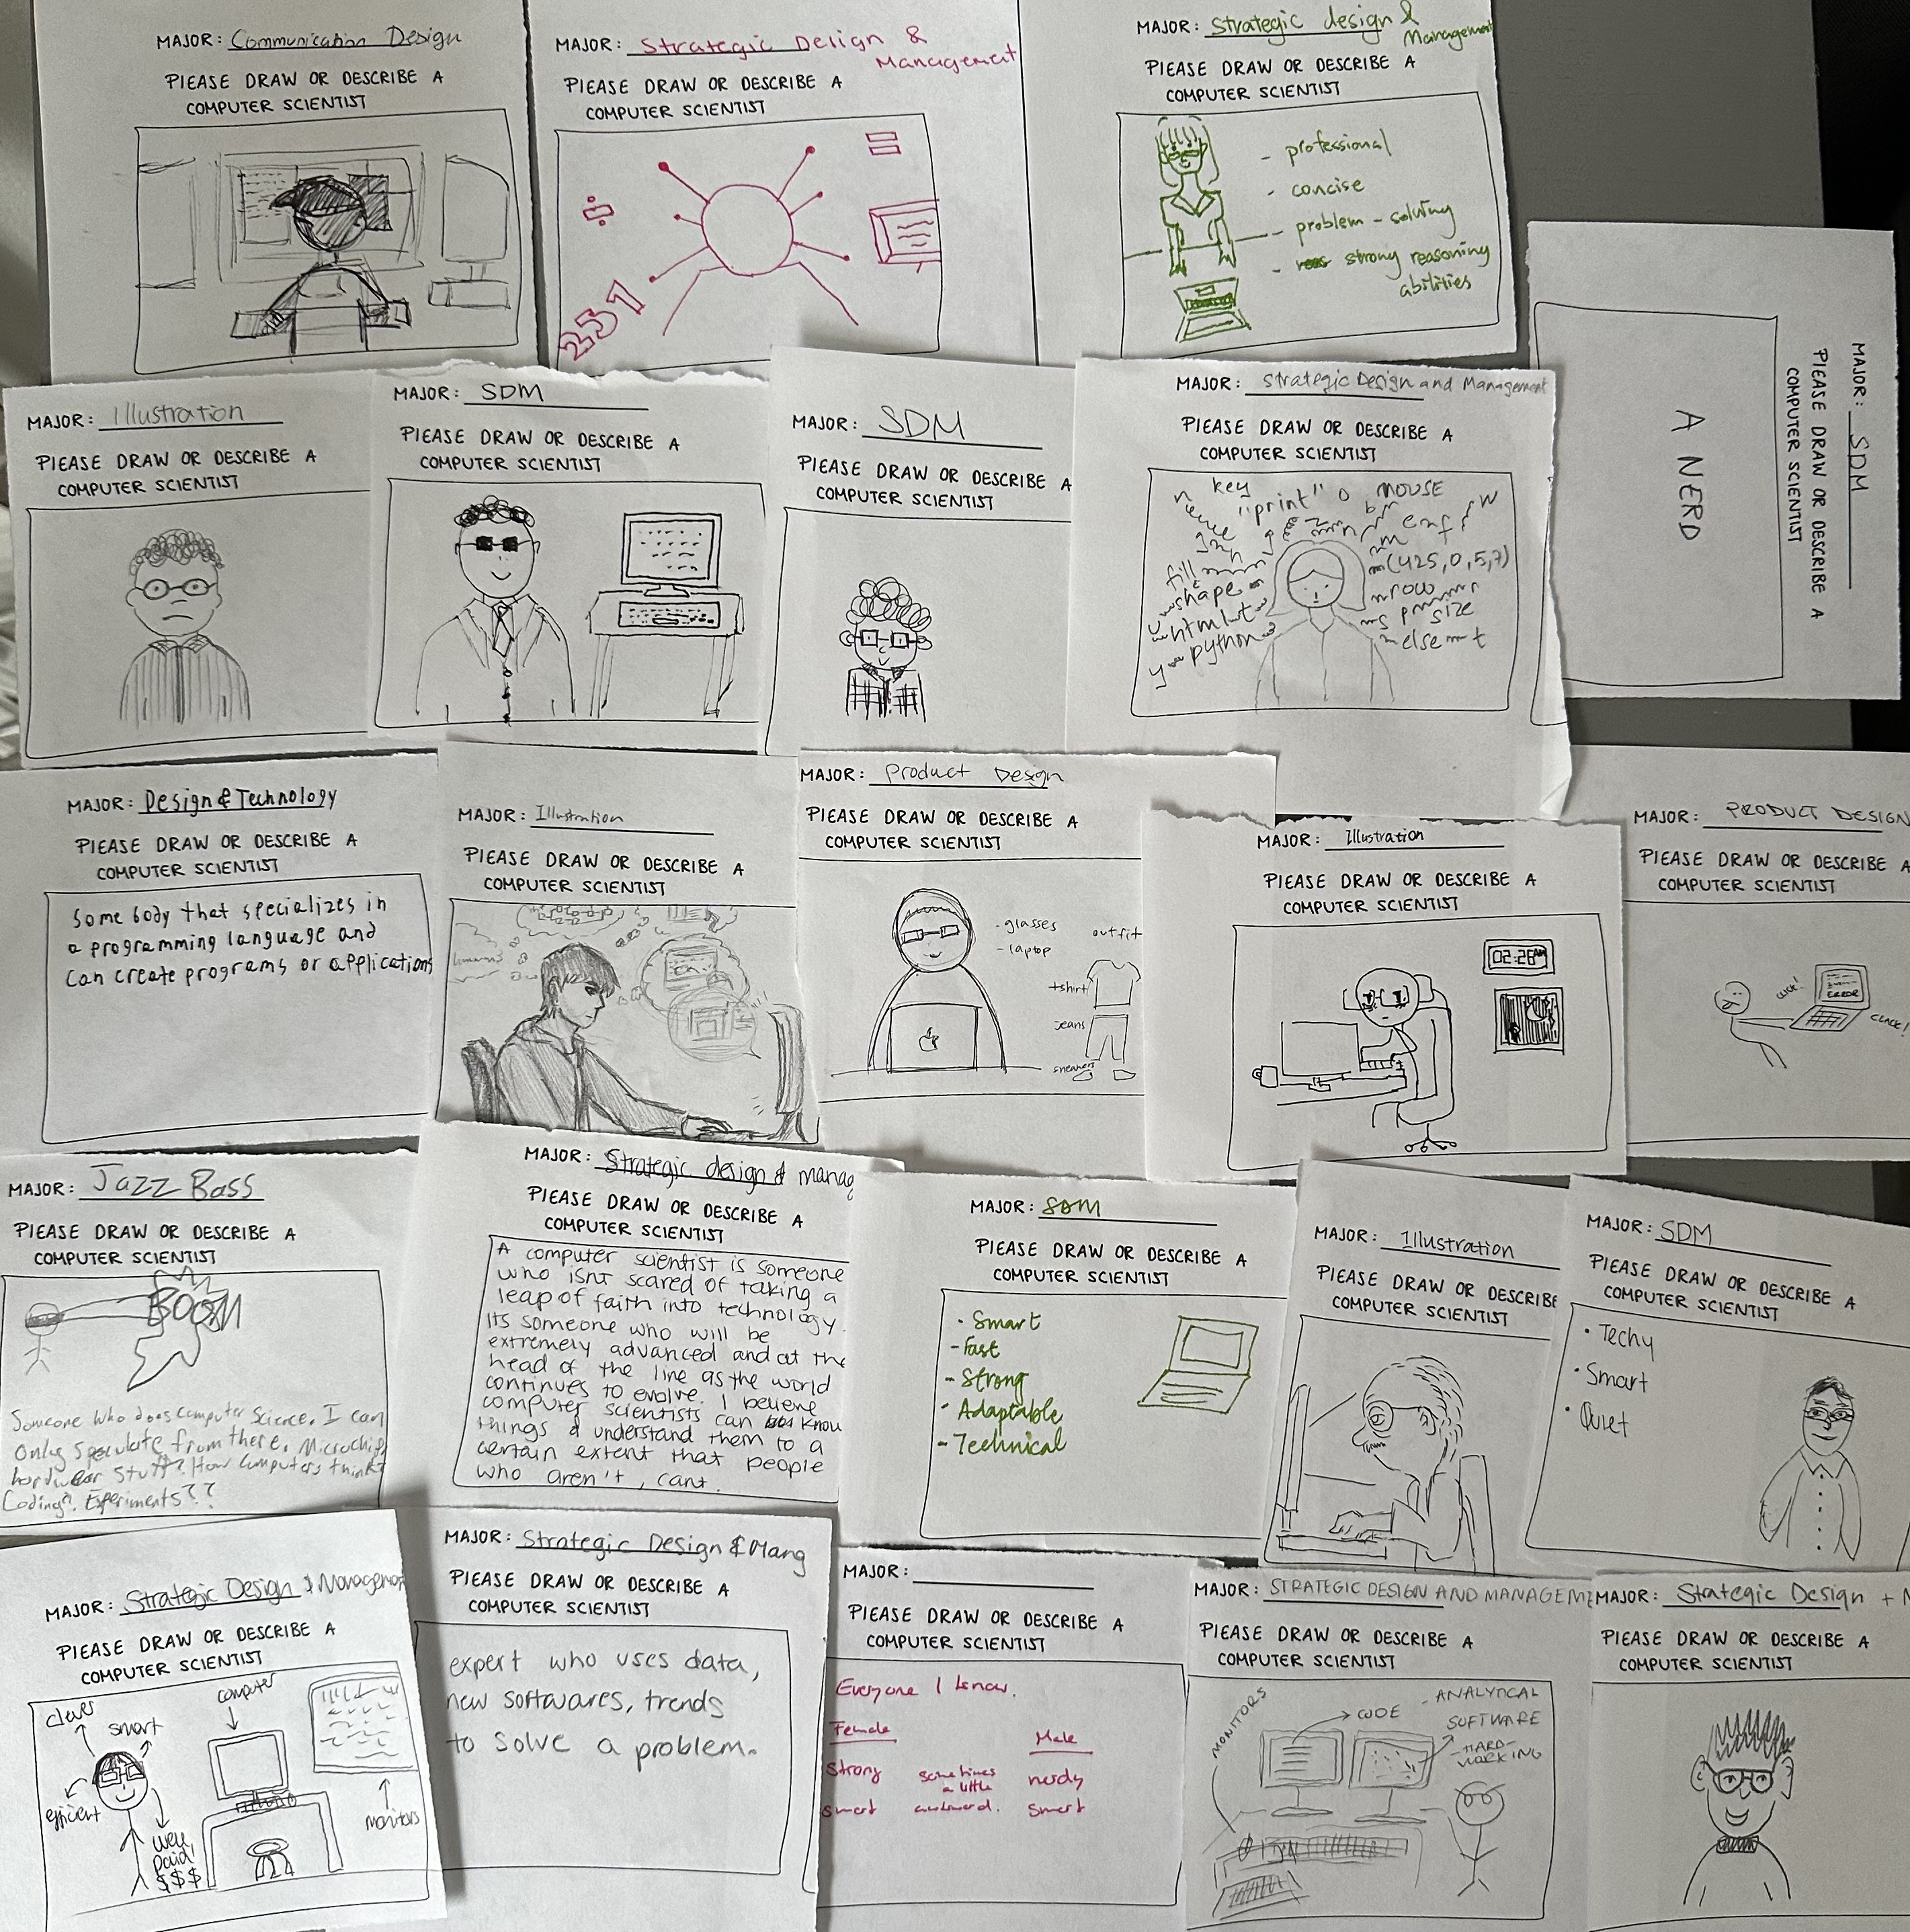 MAJOR: Communication Design
PLEASE DRAW OR DESCRIBE A
COMPUTER SCIENTIST
MAJOR: Strategic Design &
Management
PLEASE DRAW OR DESCRIBE A
COMPUTER SCIENTIST
251
MAJOR: Strategic design &
Management
PLEASE DRAW OR DESCRIBE A
COMPUTER SCIENTIST
- professional
- concise
- problem-solving
- strong reasoning
abilities
MAJOR: SDM
PLEASE DRAW OR DESCRIBE A
COMPUTER SCIENTIST
A NERD
MAJOR: Illustration
PLEASE DRAW OR DESCRIBE A
COMPUTER SCIENTIST
MAJOR: SDM
PLEASE DRAW OR DESCRIBE A
COMPUTER SCIENTIST
MAJOR: SDM
PLEASE DRAW OR DESCRIBE A
COMPUTER SCIENTIST
MAJOR: Strategic Design and Management
PLEASE DRAW OR DESCRIBE A
COMPUTER SCIENTIST
key
"print" 0
MOUSE
fill
(425,0,5,7)
shape
row
html
size
python
else
MAJOR: Design & Technology
PLEASE DRAW OR DESCRIBE A
COMPUTER SCIENTIST
Some body that specializes in
a programming language and
can create programs or applications
MAJOR: Illustration
PLEASE DRAW OR DESCRIBE A
COMPUTER SCIENTIST
MAJOR: Product Design
PLEASE DRAW OR DESCRIBE A
COMPUTER SCIENTIST
- glasses
- laptop
outfit
tshirt
jeans
sneakers
MAJOR: Illustration
PLEASE DRAW OR DESCRIBE A
COMPUTER SCIENTIST
02:28AM
MAJOR: PRODUCT DESIGN
PLEASE DRAW OR DESCRIBE A
COMPUTER SCIENTIST
ERROR
CLACK!
MAJOR: Jazz Bass
PLEASE DRAW OR DESCRIBE A
COMPUTER SCIENTIST
BOOM
Someone who does computer science. I can
only speculate from there. Microchip
hardwear stuff? How computers think?
Coding? Experiments??
MAJOR: Strategic design & manag
PLEASE DRAW OR DESCRIBE A
COMPUTER SCIENTIST
A computer scientist is someone
who isnt scared of taking a
leap of faith into technology.
Its someone who will be
extremely advanced and at the
head of the line as the world
continues to evolve. I believe
computer scientists can know
things & understand them to a
certain extent that people
who aren't, cant.
MAJOR: SDM
PLEASE DRAW OR DESCRIBE A
COMPUTER SCIENTIST
- Smart
- Fast
- Strong
- Adaptable
- Technical
MAJOR: Illustration
PLEASE DRAW OR DESCRIBE
COMPUTER SCIENTIST
MAJOR: SDM
PLEASE DRAW OR DESCRIBE A
COMPUTER SCIENTIST
• Techy
• Smart
• Quiet
MAJOR: Strategic Design & Managemen
PLEASE DRAW OR DESCRIBE A
COMPUTER SCIENTIST
clever
smart
computer
efficient
well
paid!
$$$
monitors
MAJOR: Strategic Design & Mang
PLEASE DRAW OR DESCRIBE A
COMPUTER SCIENTIST
expert who uses data,
new softwares, trends
to solve a problem.
MAJOR:
PLEASE DRAW OR DESCRIBE A
COMPUTER SCIENTIST
Everyone I know.
Female
Male
strong
sometimes
a little
awkward.
nerdy
smart
smart
MAJOR: STRATEGIC DESIGN AND MANAGEME
PLEASE DRAW OR DESCRIBE A
COMPUTER SCIENTIST
MONITORS
CODE
- ANALYTICAL
SOFTWARE
- HARD-
WORKING
MAJOR: Strategic Design +
PLEASE DRAW OR DESCRIBE A
COMPUTER SCIENTIST